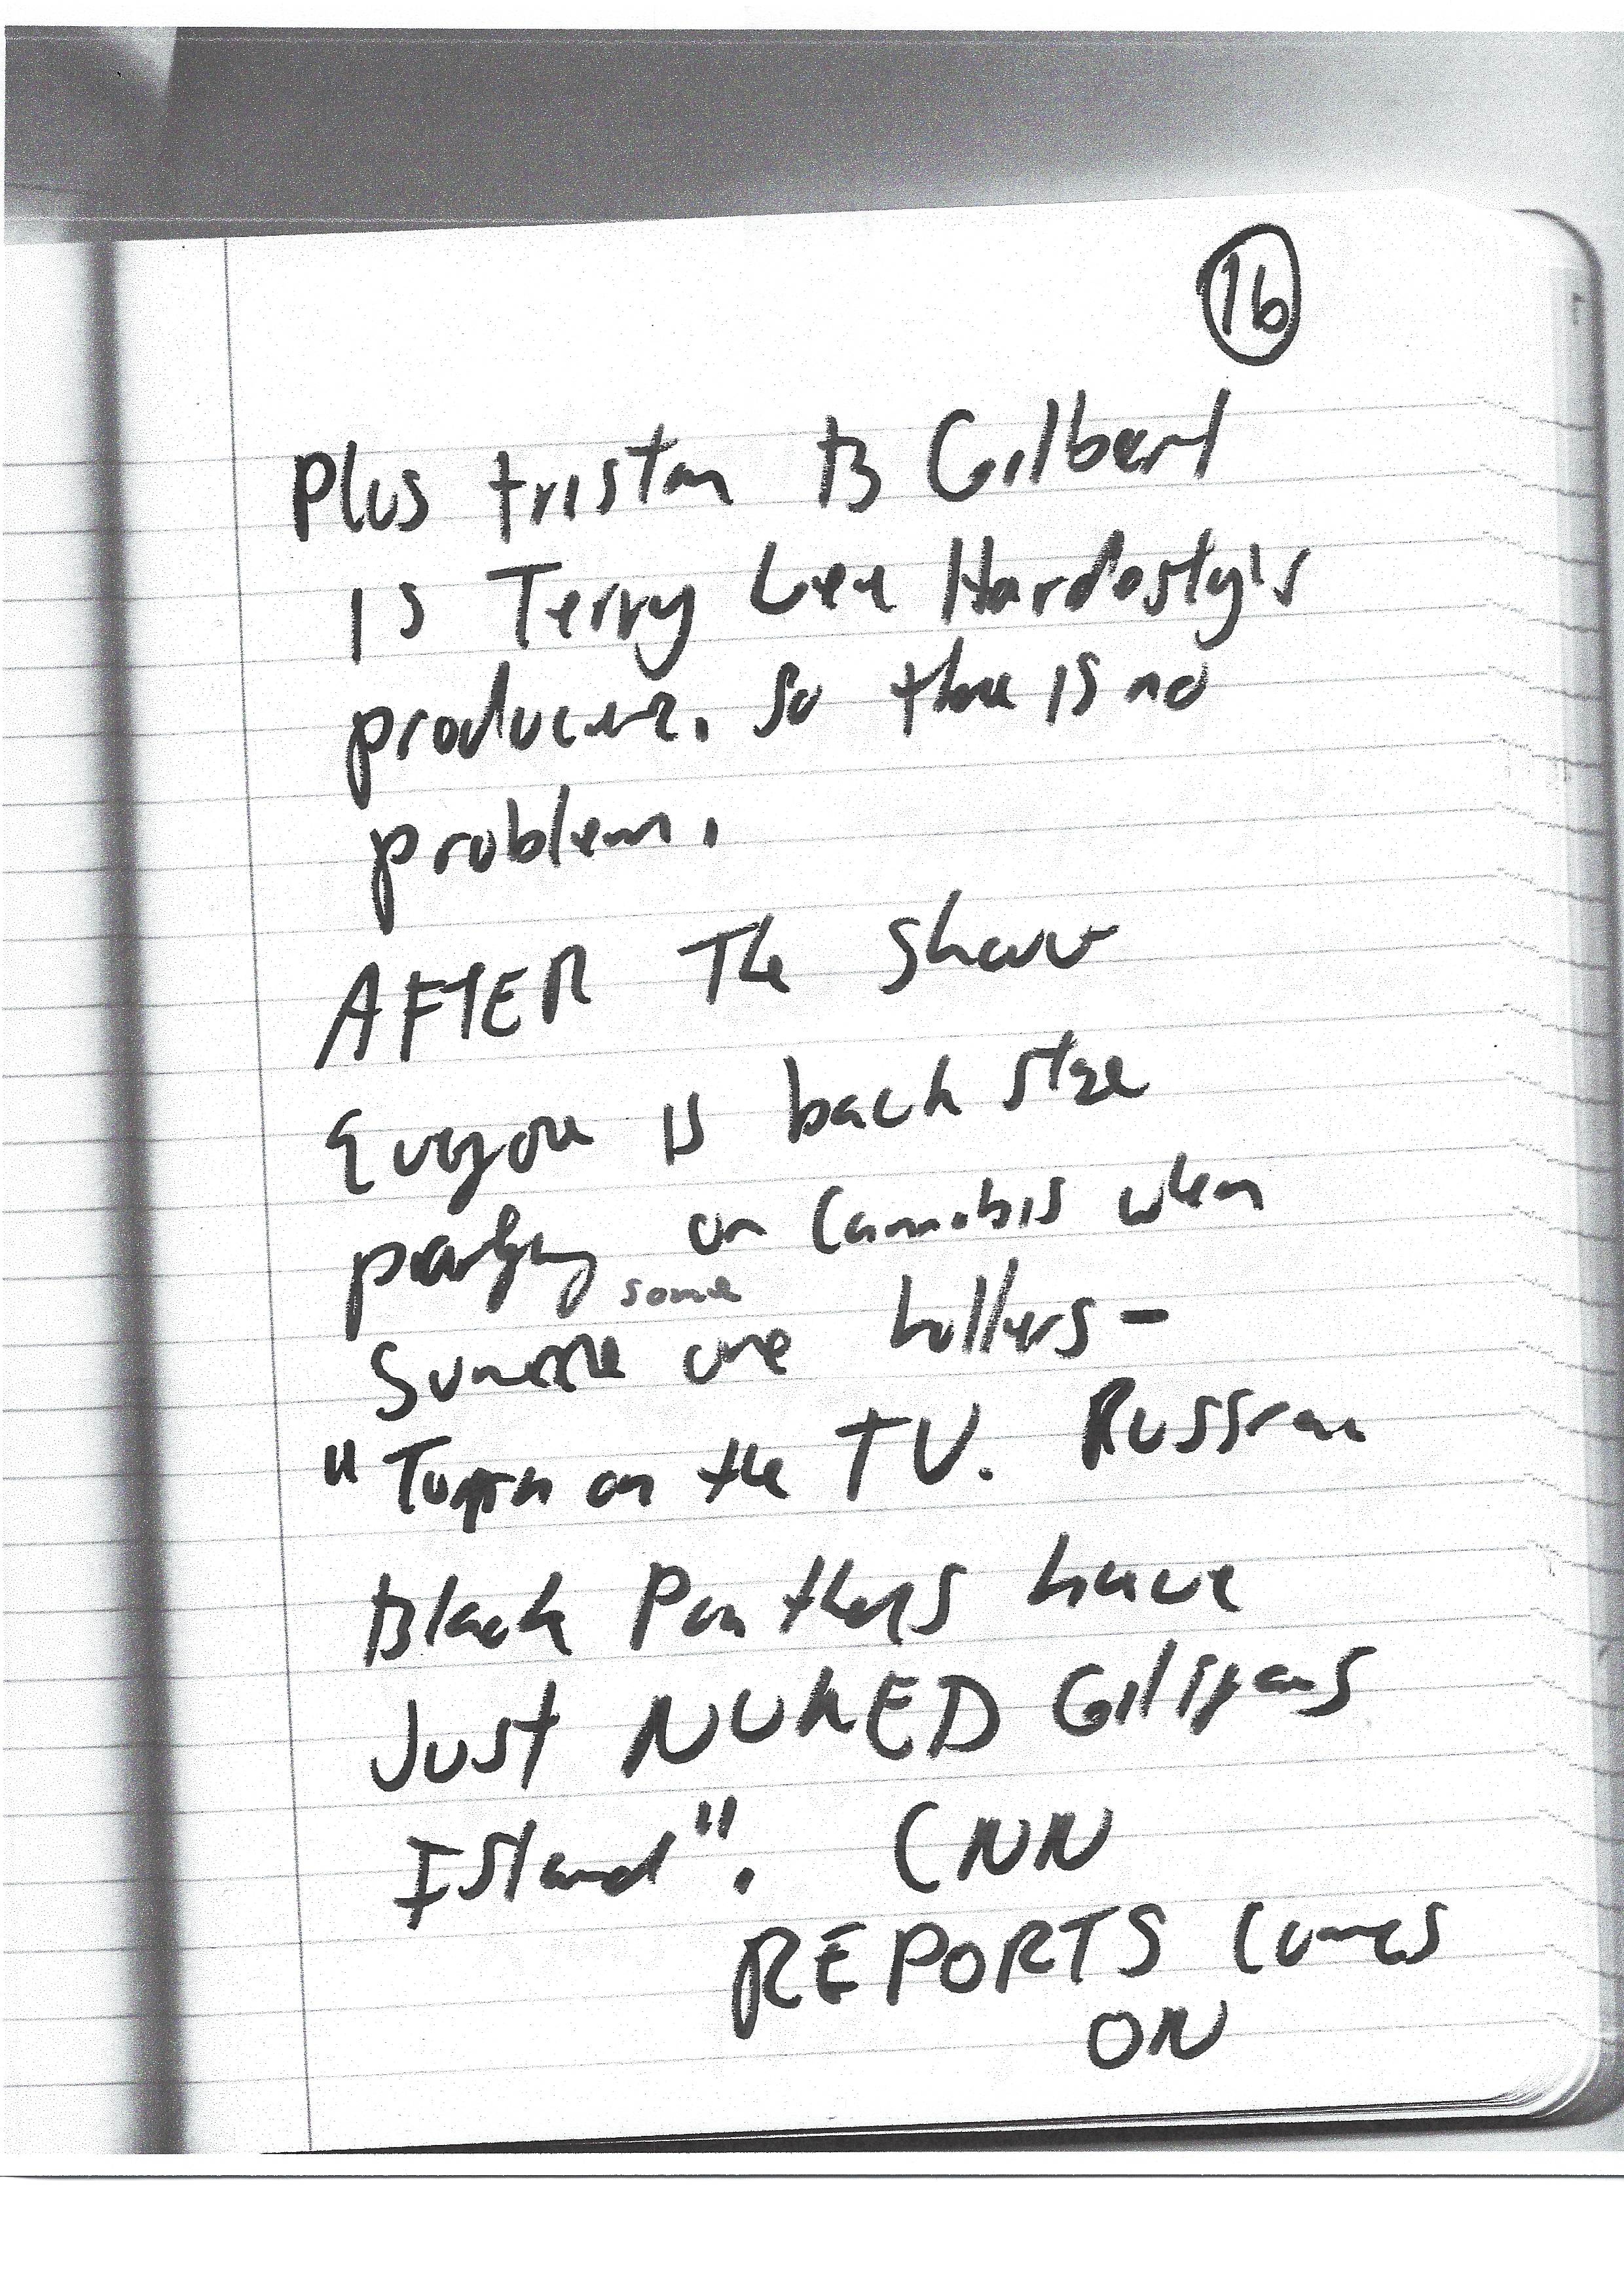 16
Plus tristan B Gilbert
is Terry Lee Hardesty's
producer. So there is no
problem.
AFTER The Show
Everyone is back stage
partying on Cannabis when
some
one hollers-
"Turn on the TV. Russian
Black Panthers have
Just NUKED Giligans
Island". CNN
REPORTS Comes
ON